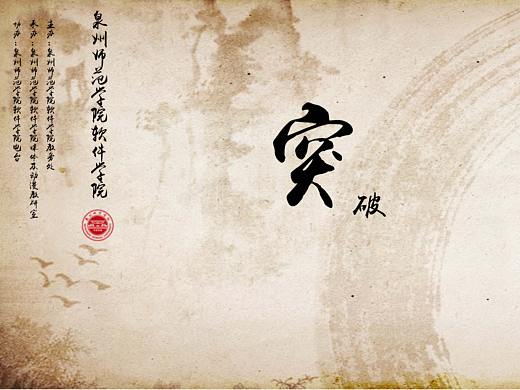 突破
泉州师范学院软件学院
主办：泉州师范学院软件学院教务处
承办：泉州师范学院软件学院媒体及动漫教研室
协办：泉州师范学院软件学院电台